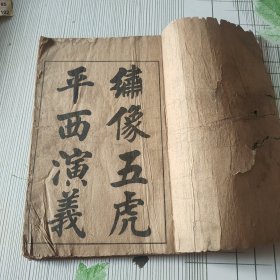 繡像五虎
平西演義